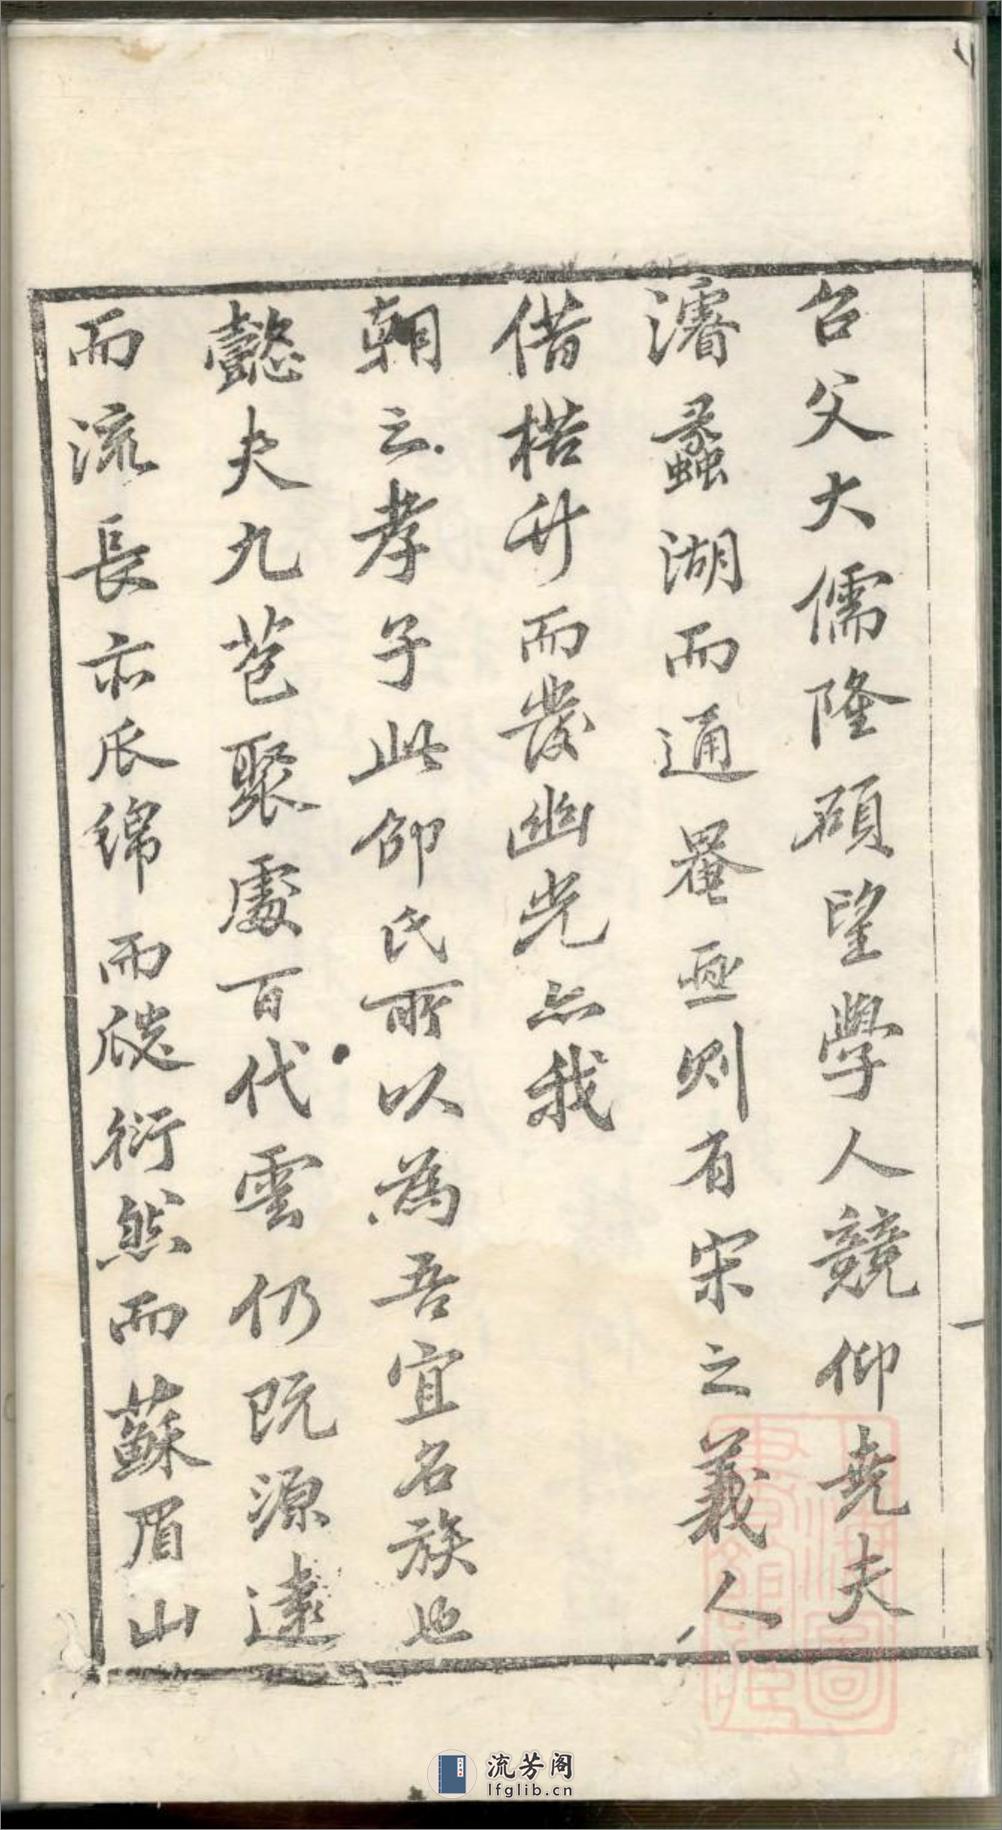 召父大儒隆碩望學人競仰堯夫
濬蠡湖而通罨画則有宋之義人
借楛竹而發幽光亦我
朝之孝子此邵氏所以為吾宜名族也
懿夫九苞聚處百代雲仍既源遠
而流長亦瓜綿而瓞衍然而蘇眉山
流芳阁
lfglib.cn